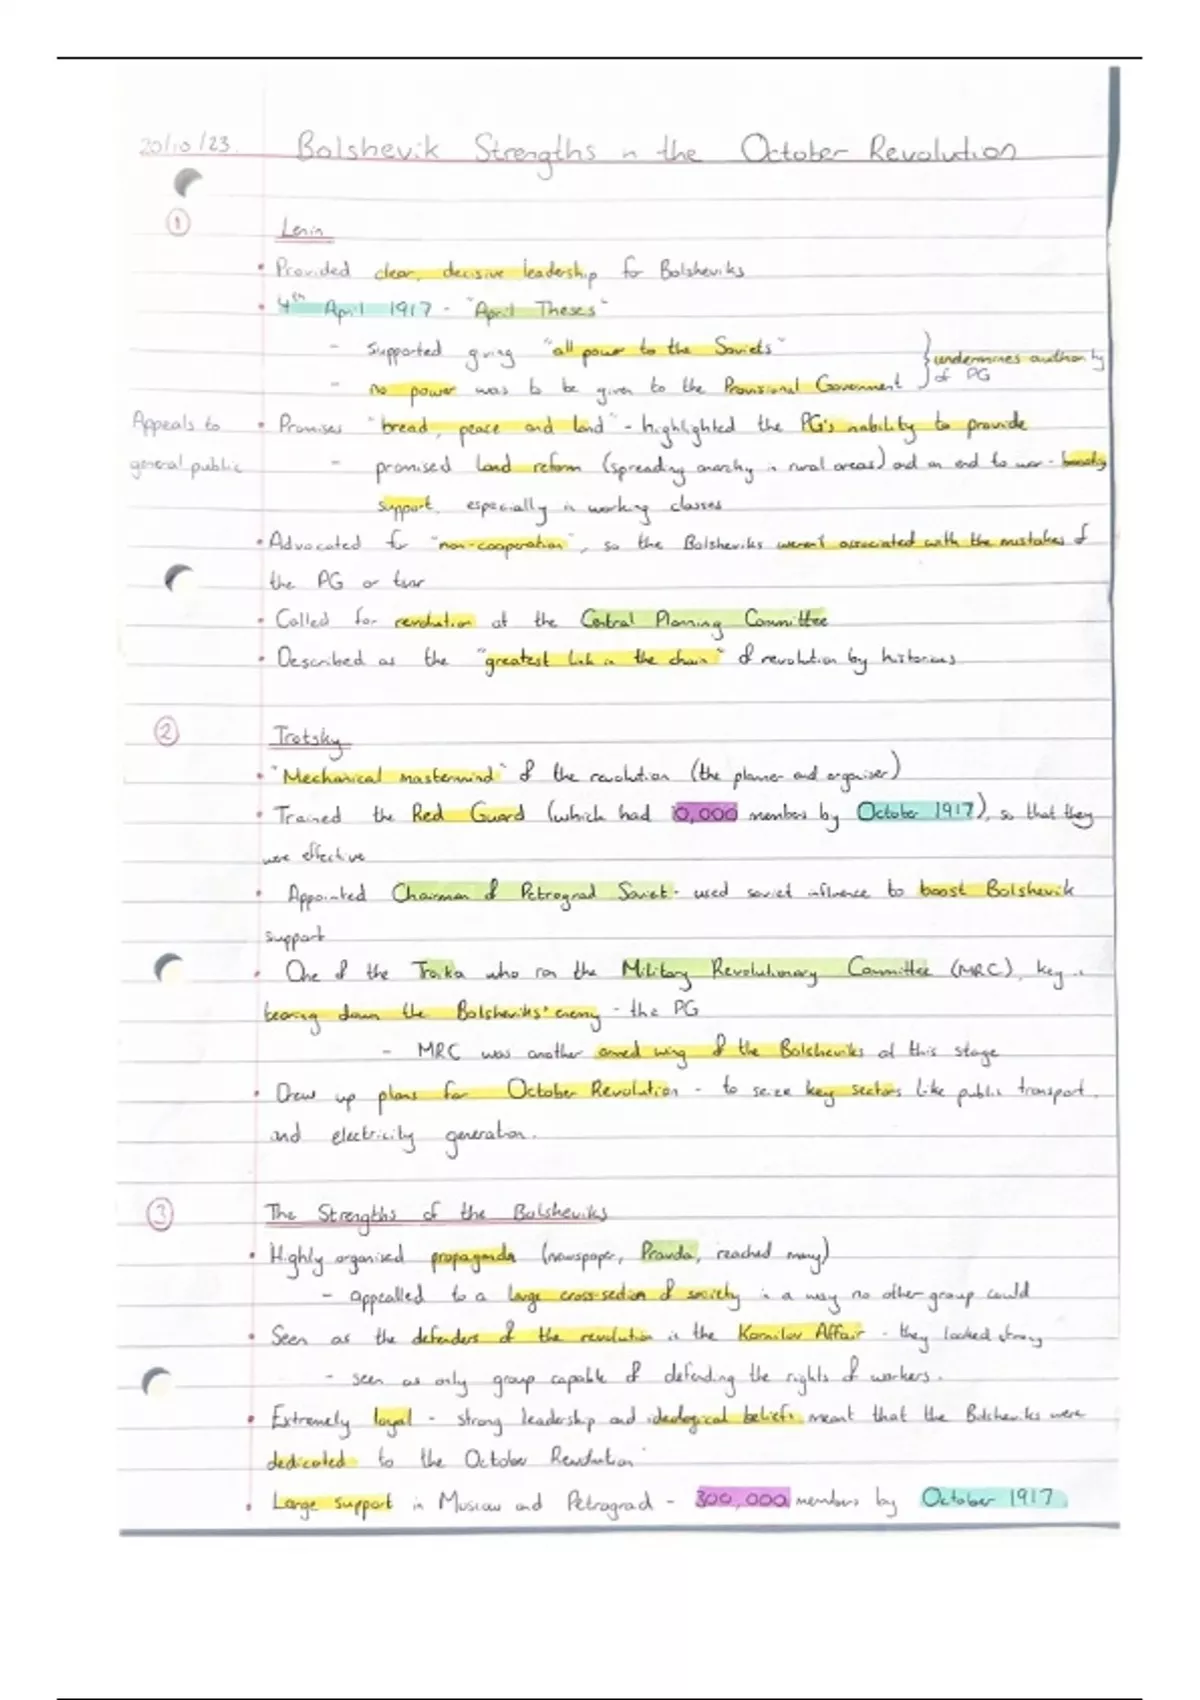 20/10/23. Bolshevik Strengths in the October Revolution
① Lenin
• Provided clear, decisive leadership for Bolsheviks
• 4th April 1917 - "April Theses"
- supported giving "all power to the Soviets"
- no power was to be given to the Provisional Government } undermines authority of PG
Appeals to general public
• Promises "bread, peace and land" - highlighted the PG's inability to provide
- promised land reform (spreading anarchy in rural areas) and an end to war - boosting
support, especially in working classes
• Advocated for "non-cooperation", so the Bolsheviks weren't associated with the mistakes of
the PG or tsar
• Called for revolution at the Central Planning Committee
• Described as the "greatest link in the chain" of revolution by historians
② Trotsky
• "Mechanical mastermind" of the revolution (the planner and organiser)
• Trained the Red Guard (which had 10,000 members by October 1917), so that they
were effective
• Appointed Chairman of Petrograd Soviet - used soviet influence to boost Bolshevik
support
• One of the Troika who ran the Military Revolutionary Committee (MRC), key
tearing down the Bolsheviks' enemy - the PG
- MRC was another armed wing of the Bolsheviks at this stage
• Drew up plans for October Revolution - to seize key sectors like public transport
and electricity generation.
③ The Strengths of the Bolsheviks
• Highly organised propaganda (newspaper, Pravda, reached many)
- appealled to a large cross-section of society in a way no other group could
• Seen as the defenders of the revolution in the Kornilov Affair - they looked strong
- seen as only group capable of defending the rights of workers.
• Extremely loyal - strong leadership and ideological beliefs meant that the Bolsheviks were
dedicated to the October Revolution
• Large support in Moscow and Petrograd - 300,000 members by October 1917